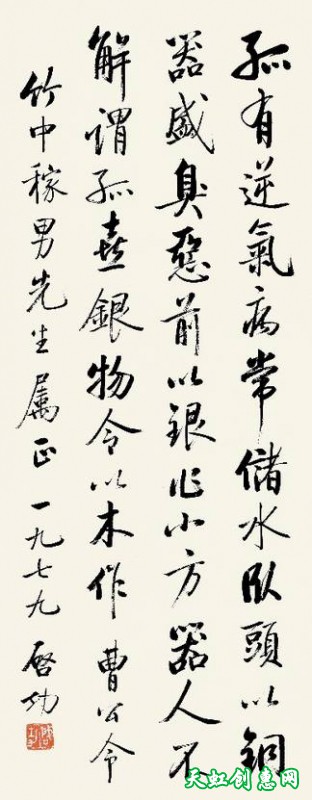 孤有逆氣病常儲水臥頭以銅
器盛臭惡前以銀作小方器人不
解謂孤喜銀物令以木作 曹公令
竹中稼男先生属正 一九七九 啓功
天虹创惠网